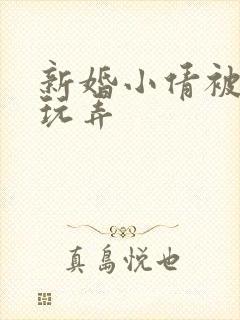 新婚小倩被
玩弄
真島悦也